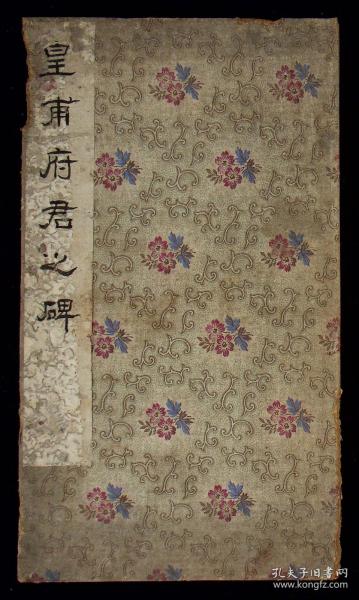 皇甫府君之碑
孔夫子旧书网